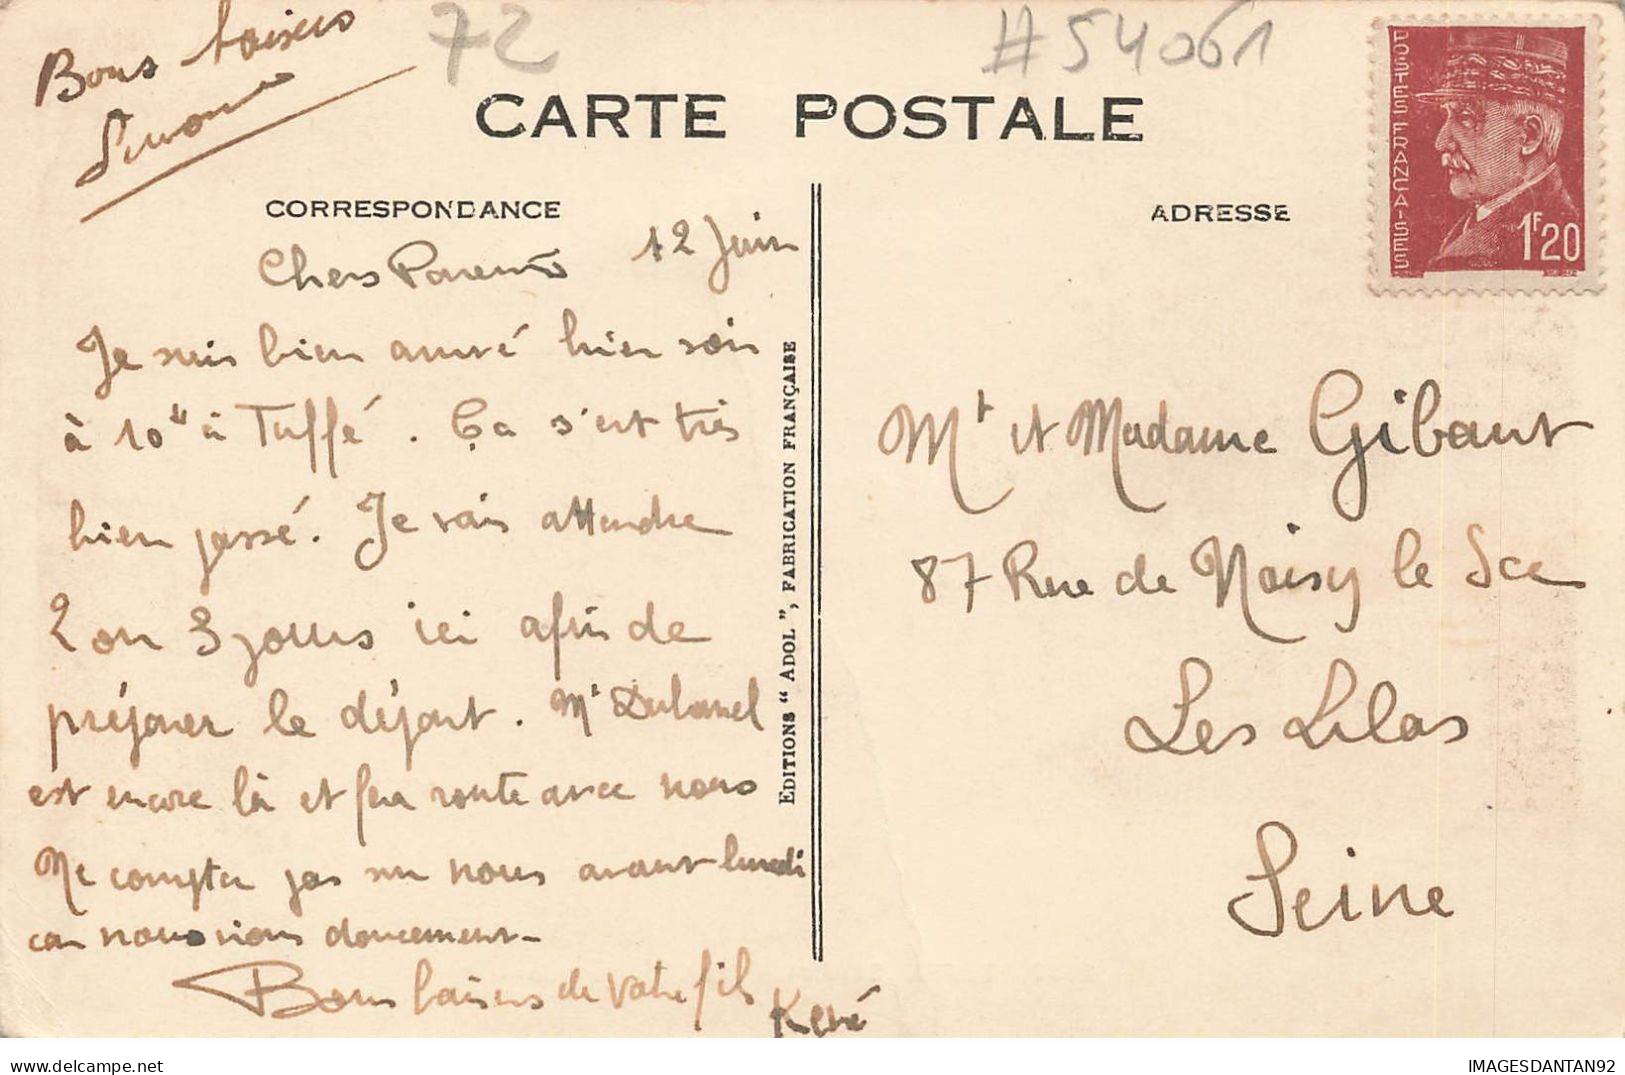 Bons baisers
Simone
72
#54061
CARTE POSTALE
CORRESPONDANCE
ADRESSE
POSTES FRANÇAISES
1F20
12 Juin
Chers Parents
Je suis bien arrivé hier soir
à 10h à Tuffé. Ça s'est très
bien passé. Je vais attendre
2 ou 3 jours ici afin de
préparer le départ. Mr Duhamel
est encore là et fera route avec nous
Ne compter pas sur nous avant lundi
car nous irons doucement-
Bons baisers de votre fils
René
EDITIONS "ADOL", FABRICATION FRANÇAISE
Mr et Madame Gibaut
87 Rue de Noisy le Sec
Les Lilas
Seine
IMAGESDANTAN92